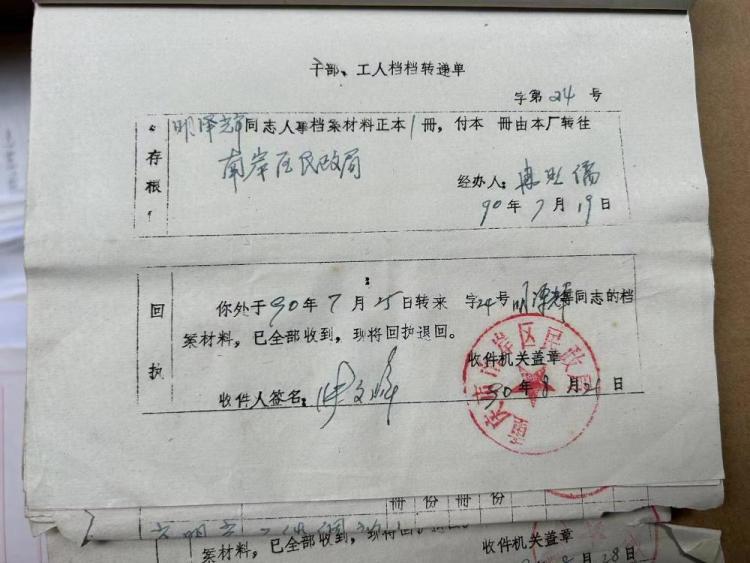 干部、工人档档转递单
字第 24 号
存根
明泽辉同志人事档案材料正本1册，付本 册由本厂转往
南岸区民政局
经办人：
90年7月19日
回执
：
你处于90年7月25日转来 字24号明泽辉等同志的档
案材料，已全部收到，现将回执退回。
收件机关盖章
收件人签名：
90年8月21日
重庆市南岸区民政局
册 份 册 份
案材料，已全部收到，现将回执退回。
收件机关盖章
月28日